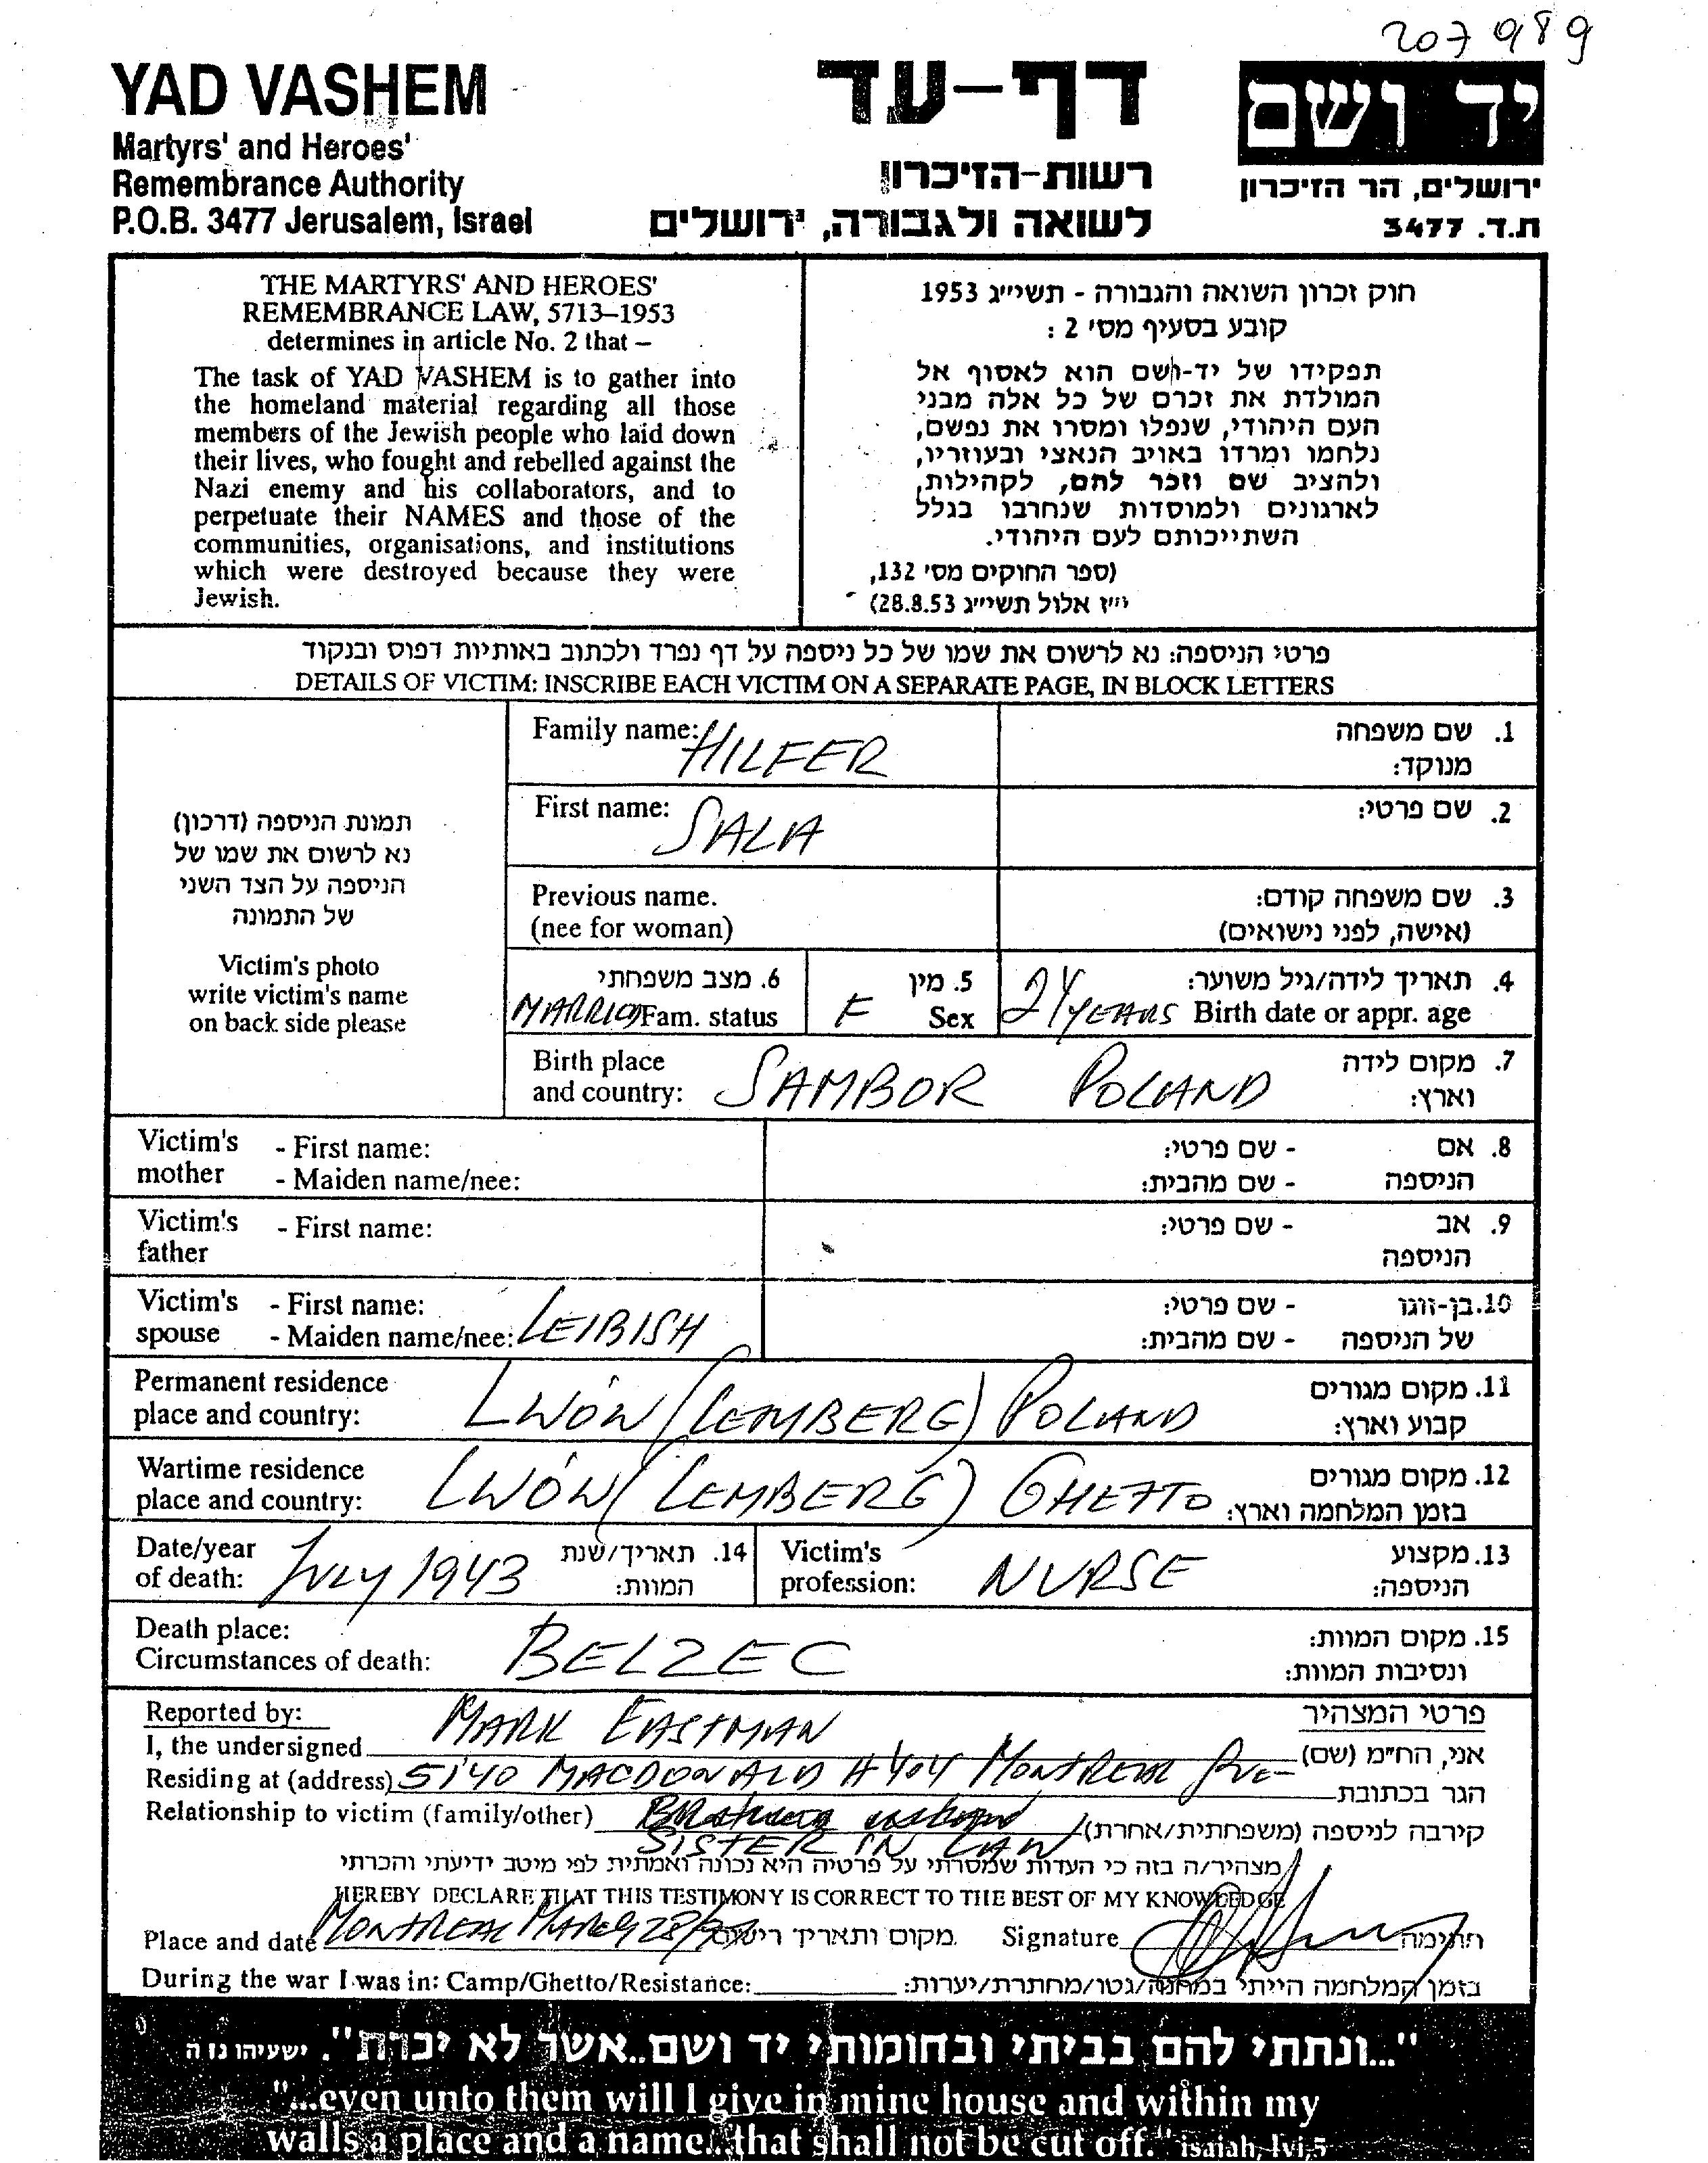 207989
YAD VASHEM
Martyrs' and Heroes'
Remembrance Authority
P.O.B. 3477 Jerusalem, Israel
דף-עד
רשות-הזיכרון
לשואה ולגבורה, ירושלים
יד ושם
ירושלים, הר הזיכרון
ת.ד. 3477
THE MARTYRS' AND HEROES'
REMEMBRANCE LAW, 5713–1953
determines in article No. 2 that –
The task of YAD VASHEM is to gather into
the homeland material regarding all those
members of the Jewish people who laid down
their lives, who fought and rebelled against the
Nazi enemy and his collaborators, and to
perpetuate their NAMES and those of the
communities, organisations, and institutions
which were destroyed because they were
Jewish.
חוק זכרון השואה והגבורה - תשי״ג 1953
קובע בסעיף מס׳ 2 :
תפקידו של יד-ושם הוא לאסוף אל
המולדת את זכרם של כל אלה מבני
העם היהודי, שנפלו ומסרו את נפשם,
נלחמו ומרדו באויב הנאצי ובעוזריו,
ולהציב שם וזכר להם, לקהילות,
לארגונים ולמוסדות שנחרבו בגלל
השתייכותם לעם היהודי.
(ספר החוקים מס׳ 132,
י״ז אלול תשי״ג 28.8.53)
פרטי הניספה: נא לרשום את שמו של כל ניספה על דף נפרד ולכתוב באותיות דפוס ובנקוד
DETAILS OF VICTIM: INSCRIBE EACH VICTIM ON A SEPARATE PAGE, IN BLOCK LETTERS
תמונת הניספה (דרכון)
נא לרשום את שמו של
הניספה על הצד השני
של התמונה
Victim's photo
write victim's name
on back side please
Family name: HILFER 1. שם משפחה
מנוקד:
First name: SALA 2. שם פרטי:
Previous name. 3. שם משפחה קודם:
(nee for woman) (אישה, לפני נישואים)
6. מצב משפחתי 5. מין 4. תאריך לידה/גיל משוער:
MARRIED Fam. status F Sex 24 YEARS Birth date or appr. age
Birth place 7. מקום לידה
and country: SAMBOR POLAND וארץ:
Victim's - First name: - שם פרטי: 8. אם
mother - Maiden name/nee: - שם מהבית: הניספה
Victim's - First name: - שם פרטי: 9. אב
father הניספה
Victim's - First name: - שם פרטי: 10. בן-זוגו
spouse - Maiden name/nee: LEIBISH - שם מהבית: של הניספה
Permanent residence 11. מקום מגורים
place and country: LWÓW (LEMBERG) POLAND קבוע וארץ:
Wartime residence 12. מקום מגורים
place and country: LWÓW (LEMBERG) GHETTO בזמן המלחמה וארץ:
Date/year 14. תאריך/שנת Victim's 13. מקצוע
of death: JULY 1943 המוות: profession: NURSE הניספה:
Death place: 15. מקום המוות:
Circumstances of death: BELZEC ונסיבות המוות:
Reported by: פרטי המצהיר
I, the undersigned MARK EASTMAN אני, הח״מ (שם)
Residing at (address) 5140 MACDONALD # 404 MONTREAL הגר בכתובת
Relationship to victim (family/other) קירבה לניספה (משפחתית/אחרת)
SISTER IN LAW
מצהיר/ה בזה כי העדות שמסרתי על פרטיה היא נכונה ואמתית לפי מיטב ידיעתי והכרתי
HEREBY DECLARE THAT THIS TESTIMONY IS CORRECT TO THE BEST OF MY KNOWLEDGE
Place and date MONTREAL מקום ותאריך רישום Signature חתימה
During the war I was in: Camp/Ghetto/Resistance: בזמן המלחמה הייתי במחנה/גטו/מחתרת/יערות:
"...ונתתי להם בביתי ובחומותי יד ושם..אשר לא יכרת". ישעיהו נו ה
"...even unto them will I give in mine house and within my
walls a place and a name...that shall not be cut off." isaiah, lvi,5